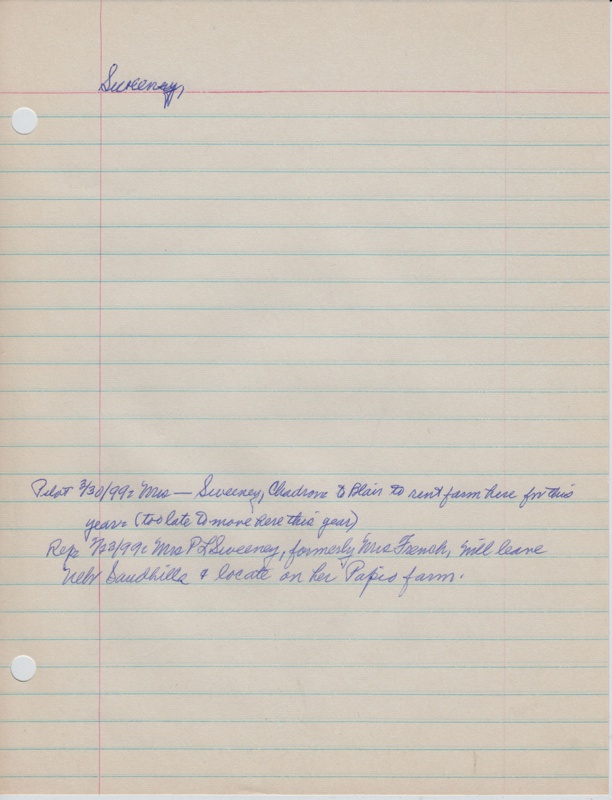 Sweeney,
Pilot 3/30/99: Mrs — Sweeney, Chadron to Blair to rent farm here for this
year. (too late to move here this year)
Rep: /99: Mrs P L Sweeney, formerly Mrs French, will leave
Nebr Sandhills & locate on her Papio farm.